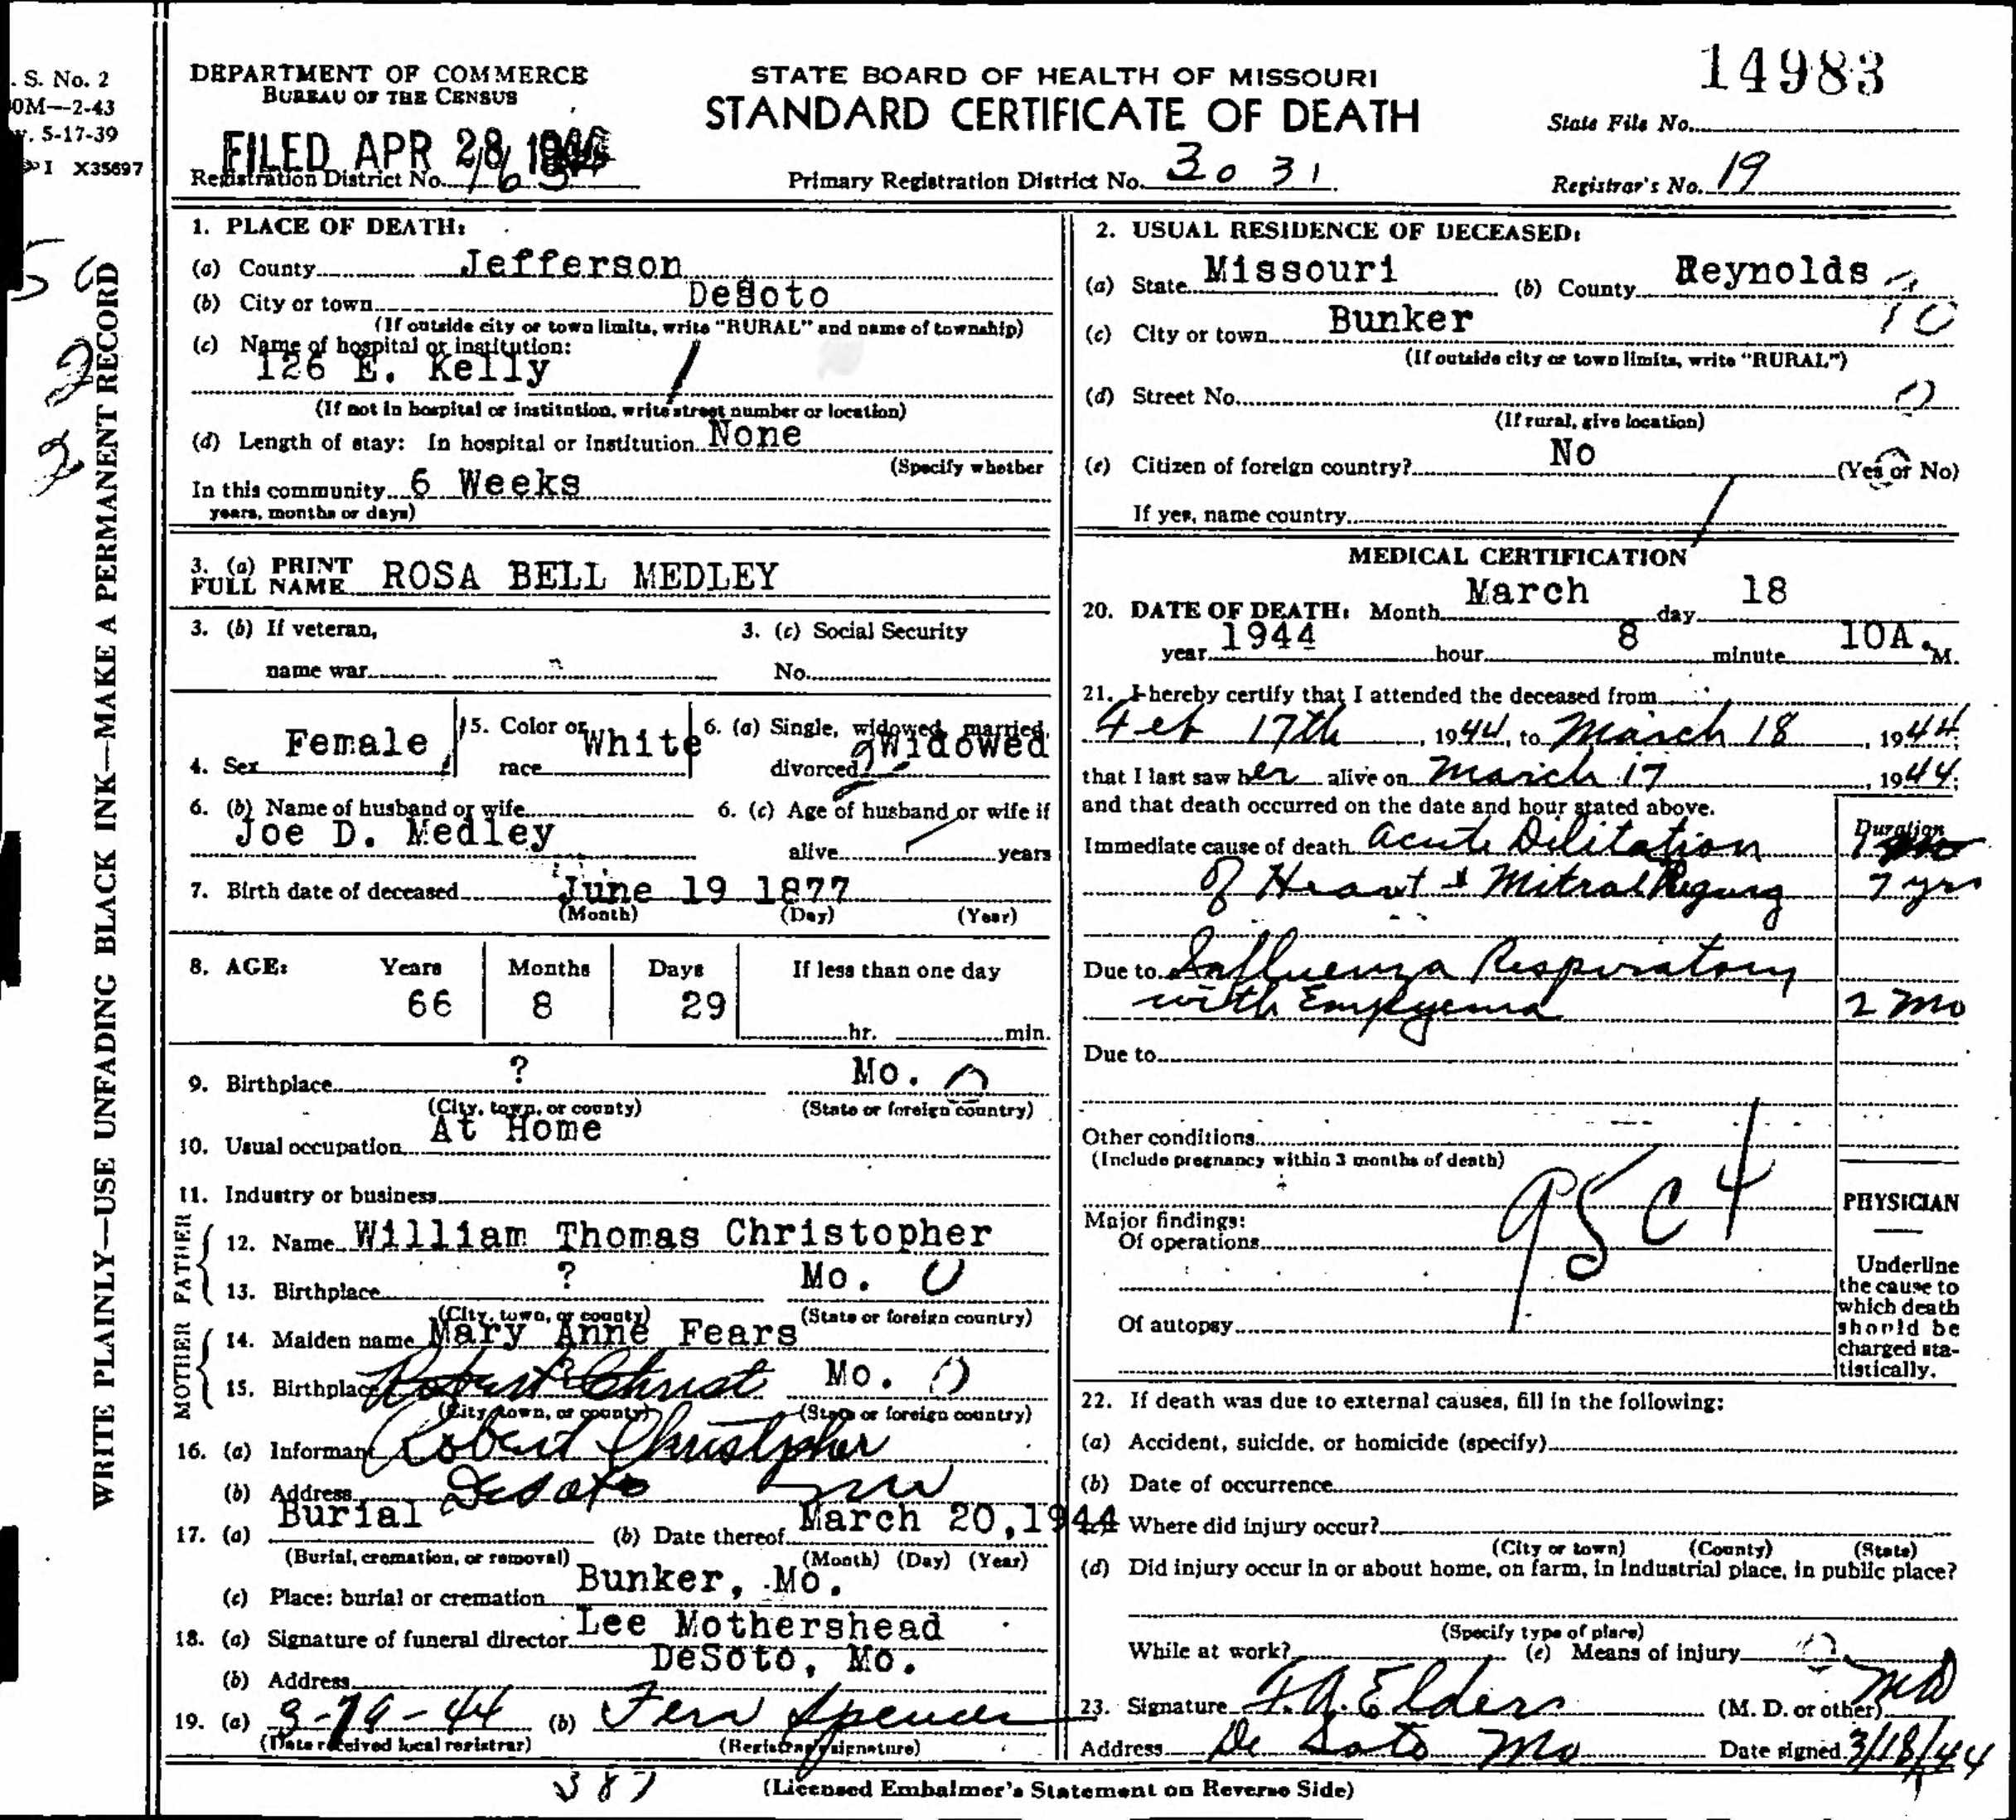 . S. No. 2
0M—2-43
v. 5-17-39
I X35697
WRITE PLAINLY—USE UNFADING BLACK INK—MAKE A PERMANENT RECORD
DEPARTMENT OF COMMERCE
BUREAU OF THE CENSUS
FILED APR 28
STATE BOARD OF HEALTH OF MISSOURI
STANDARD CERTIFICATE OF DEATH
14983
State File No.
Registration District No. 163
Primary Registration District No. 3031
Registrar's No. 19
1. PLACE OF DEATH:
(a) County Jefferson
(b) City or town DeSoto
(If outside city or town limits, write "RURAL" and name of township)
(c) Name of hospital or institution:
126 E. Kelly
(If not in hospital or institution, write street number or location)
(d) Length of stay: In hospital or Institution None
(Specify whether
In this community 6 Weeks
years, months or days)
2. USUAL RESIDENCE OF DECEASED:
(a) State Missouri (b) County Reynolds
(c) City or town Bunker
(If outside city or town limits, write "RURAL")
(d) Street No.
(If rural, give location)
(e) Citizen of foreign country? No (Yes or No)
If yes, name country
3. (a) PRINT FULL NAME ROSA BELL MEDLEY
3. (b) If veteran,
name war
3. (c) Social Security
No.
4. Sex Female 5. Color or race White 6. (a) Single, widowed, married, divorced Widowed
6. (b) Name of husband or wife
Joe D. Medley
6. (c) Age of husband or wife if
alive years
7. Birth date of deceased June 19 1877
(Month) (Day) (Year)
8. AGE: Years Months Days If less than one day
66 8 29 hr. min.
9. Birthplace ? Mo.
(City, town, or county) (State or foreign country)
10. Usual occupation At Home
11. Industry or business
FATHER
12. Name William Thomas Christopher
13. Birthplace ? Mo.
(City, town, or county) (State or foreign country)
MOTHER
14. Maiden name Mary Anne Fears
15. Birthplace ? Robert Christ Mo.
(City, town, or county) (State or foreign country)
16. (a) Informant Robert Christopher
(b) Address Desoto Mo
17. (a) Burial (b) Date thereof March 20, 1944
(Burial, cremation, or removal) (Month) (Day) (Year)
(c) Place: burial or cremation Bunker, Mo.
18. (a) Signature of funeral director Lee Mothershead
(b) Address DeSoto, Mo.
19. (a) 3-19-44 (b) Fern Spencer
(Date received local registrar) (Registrar's signature)
MEDICAL CERTIFICATION
20. DATE OF DEATH: Month March day 18
year 1944 hour 8 minute 10A. M.
21. I hereby certify that I attended the deceased from
Feb 17th, 1944, to March 18, 1944;
that I last saw her alive on March 17, 1944;
and that death occurred on the date and hour stated above.
Duration
Immediate cause of death Acute Dilitation
of Heart & Mitral Regurg 7 yrs
Due to Influenza Respiratory
with Empyema 2 mo
Due to
Other conditions
(Include pregnancy within 3 months of death)
95c4
Major findings:
Of operations
Of autopsy
PHYSICIAN
Underline
the cause to
which death
should be
charged sta-
tistically.
22. If death was due to external causes, fill in the following:
(a) Accident, suicide, or homicide (specify)
(b) Date of occurrence
Where did injury occur?
(City or town) (County) (State)
(d) Did injury occur in or about home, on farm, in Industrial place, in public place?
(Specify type of place)
While at work? (e) Means of injury
23. Signature F.A. Elders (M. D. or other) MD
Address De Soto Mo Date signed 3/18/44
387
(Licensed Embalmer's Statement on Reverse Side)